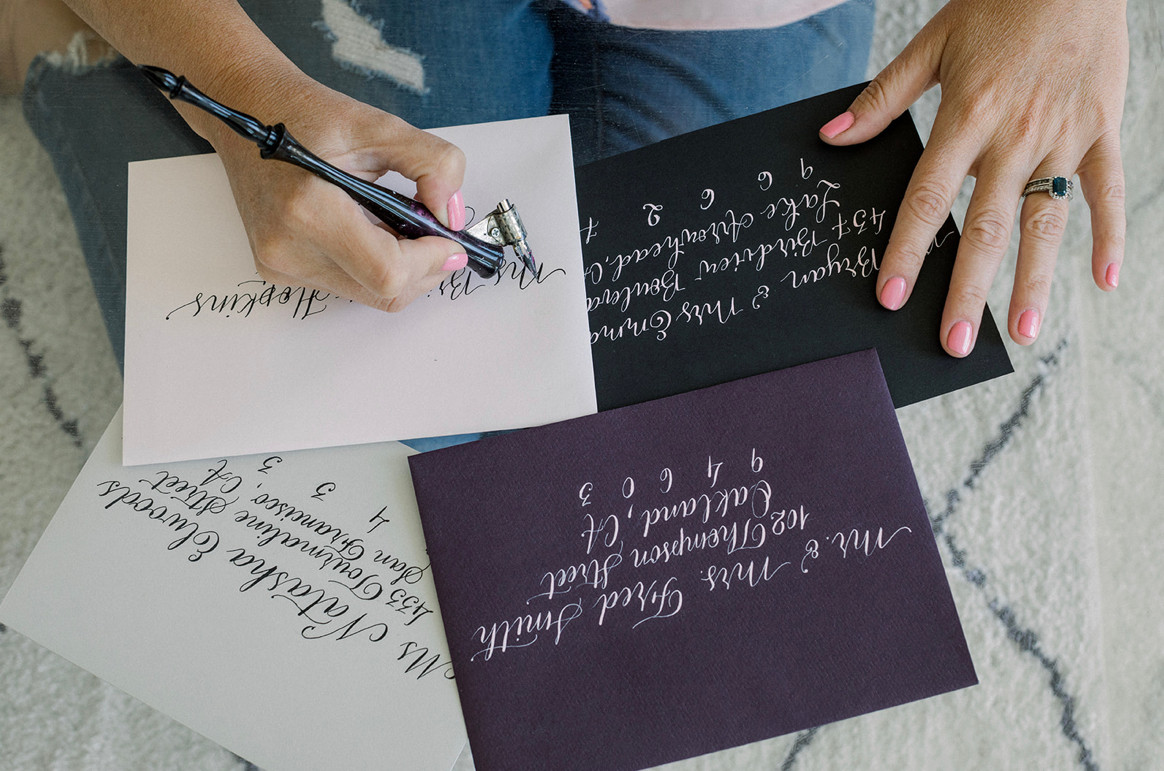 Ms
Hopkins
Bryan & Mrs Emma
437 Birdview
Lake Arrowhead, CA
9 6 6 2
Mr. & Mrs. Fred Smith
102 Thompson Street
Oakland, CA
9 4 6 0 3
Ms Natasha Elwoods
433 Tourmaline Street
San Francisco, CA
4 3 3